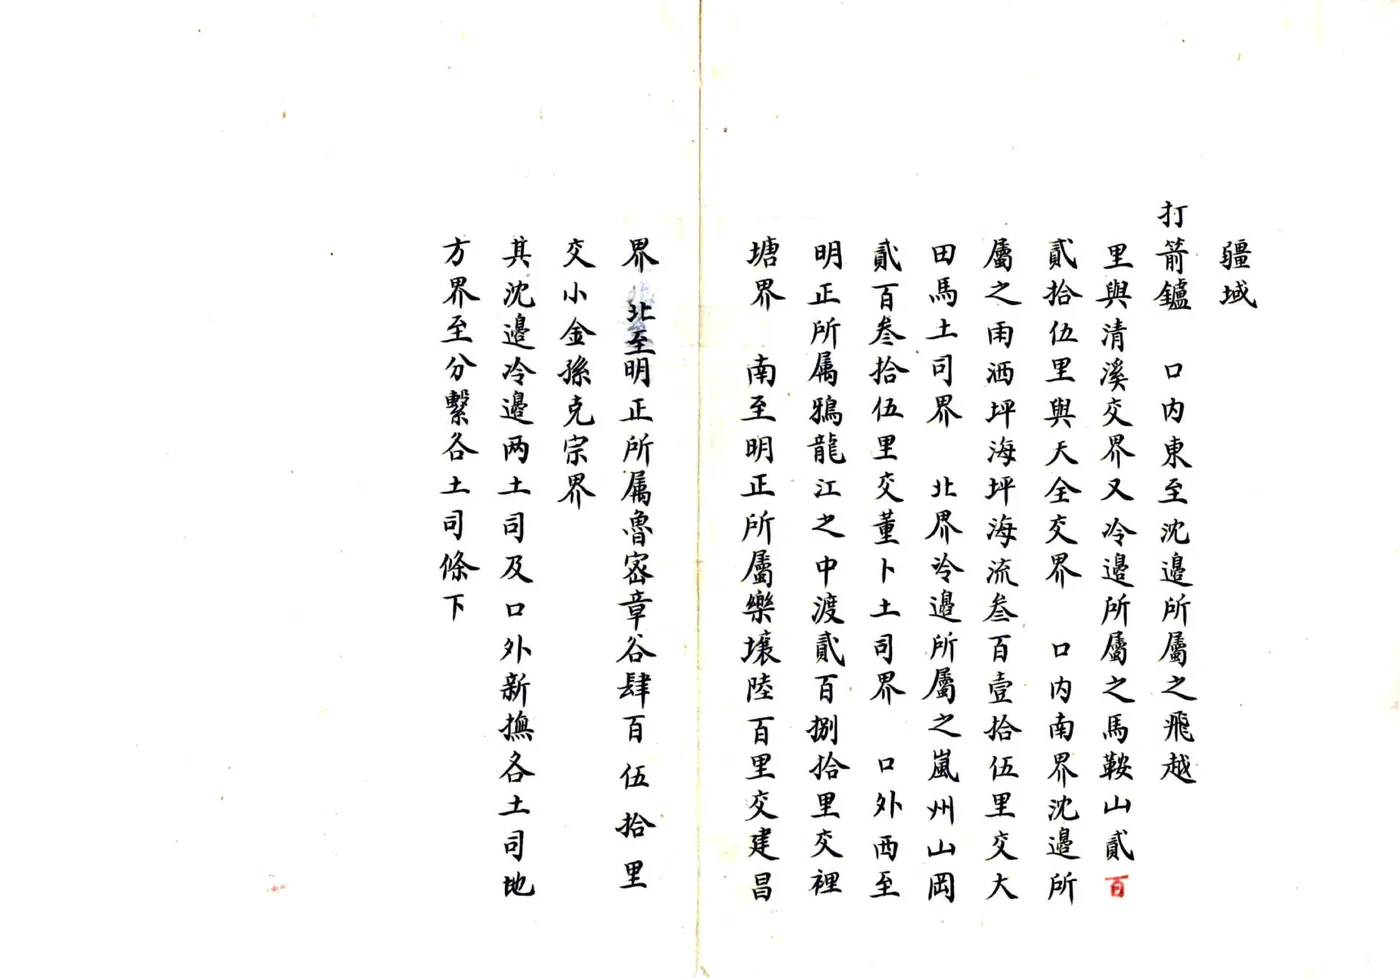 疆域
打箭鑪 口内東至沈邉所屬之飛越
里與清溪交界又冷邉所屬之馬鞍山貳百
貳拾伍里與天全交界 口内南界沈邉所
屬之雨洒坪海坪海流叁百壹拾伍里交大
田馬土司界 北界冷邉所屬之嵐州山岡
貳百叁拾伍里交董卜土司界 口外西至
明正所属鴉龍江之中渡貳百捌拾里交裡
塘界 南至明正所屬樂壤陸百里交建昌
界 北至明正所属魯宻章谷肆百伍拾里
交小金孫克宗界
其沈邉冷邉两土司及口外新撫各土司地
方界至分繫各土司條下